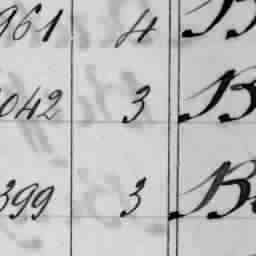 961 4 B
042 3 B
399 3 B